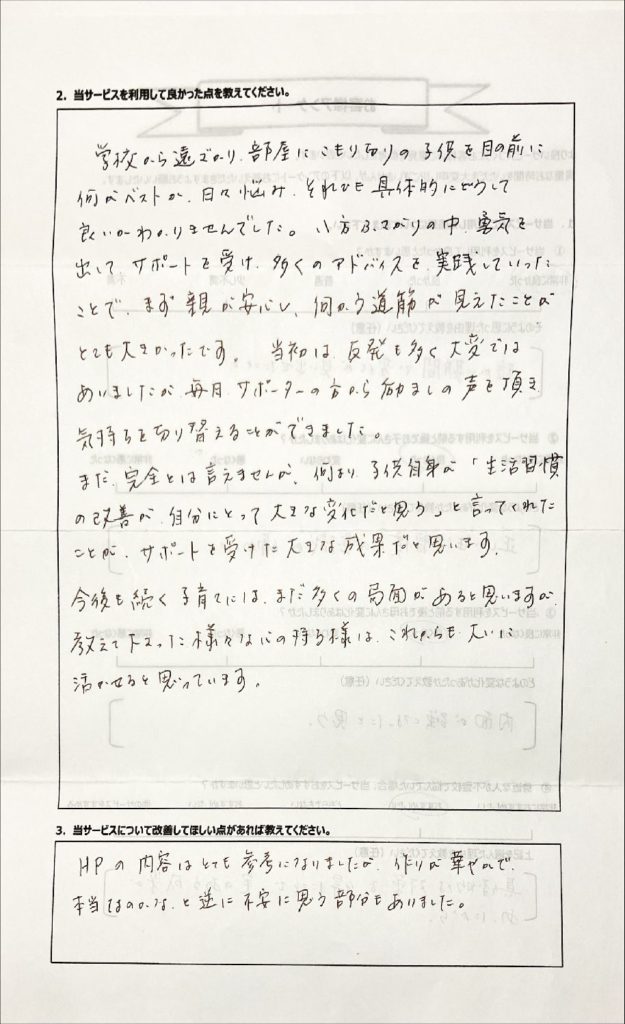 2. 当サービスを利用して良かった点を教えてください。
学校から遠ざかり、部屋にこもり切りの子供を目の前に
何がベストか、日々悩み、それでも具体的にどうして
良いかわかりませんでした。八方ふさがりの中、勇気を
出してサポートを受け、多くのアドバイスを、実践していった
ことで、まず親が安心し、何かう道筋が見えたことが
とても大きかったです。当初は、反発も多く大変では
ありましたが、毎月、サポーターの方から励ましの声を頂き
気持ちを切り替えることができました。
まだ、完全とは言えませんが、何より、子供自身が「生活習慣
の改善が、自分にとって大きな変化だと思う」と言ってくれた
ことが、サポートを受けた大きな成果だと思います。
今後も続く子育てには、まだ多くの局面があると思いますが、
教えて下さった様々な心の持ち様は、これからも大いに
活かせると思っています。
3. 当サービスについて改善してほしい点があれば教えてください。
HPの内容はとても参考になりましたが、作りが華やかで、
本当なのかな、と逆に不安に思う部分もありました。